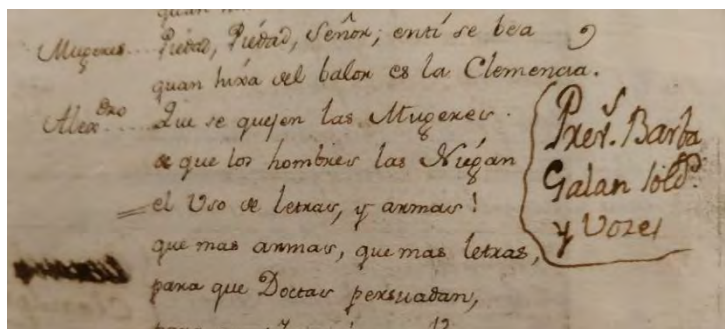 Mugeres... Piedad, Piedad, Señor; enti se bea
quan hixa del balor es la Clemencia.
Alexdro... Que se quejen las Mugeres
de que los hombres las Niégan
el Uso de letras, y armas!
que mas armas, que mas letras,
para que Doctas persuadan,
Prers. Barba
Galan sold.o
y Vozes